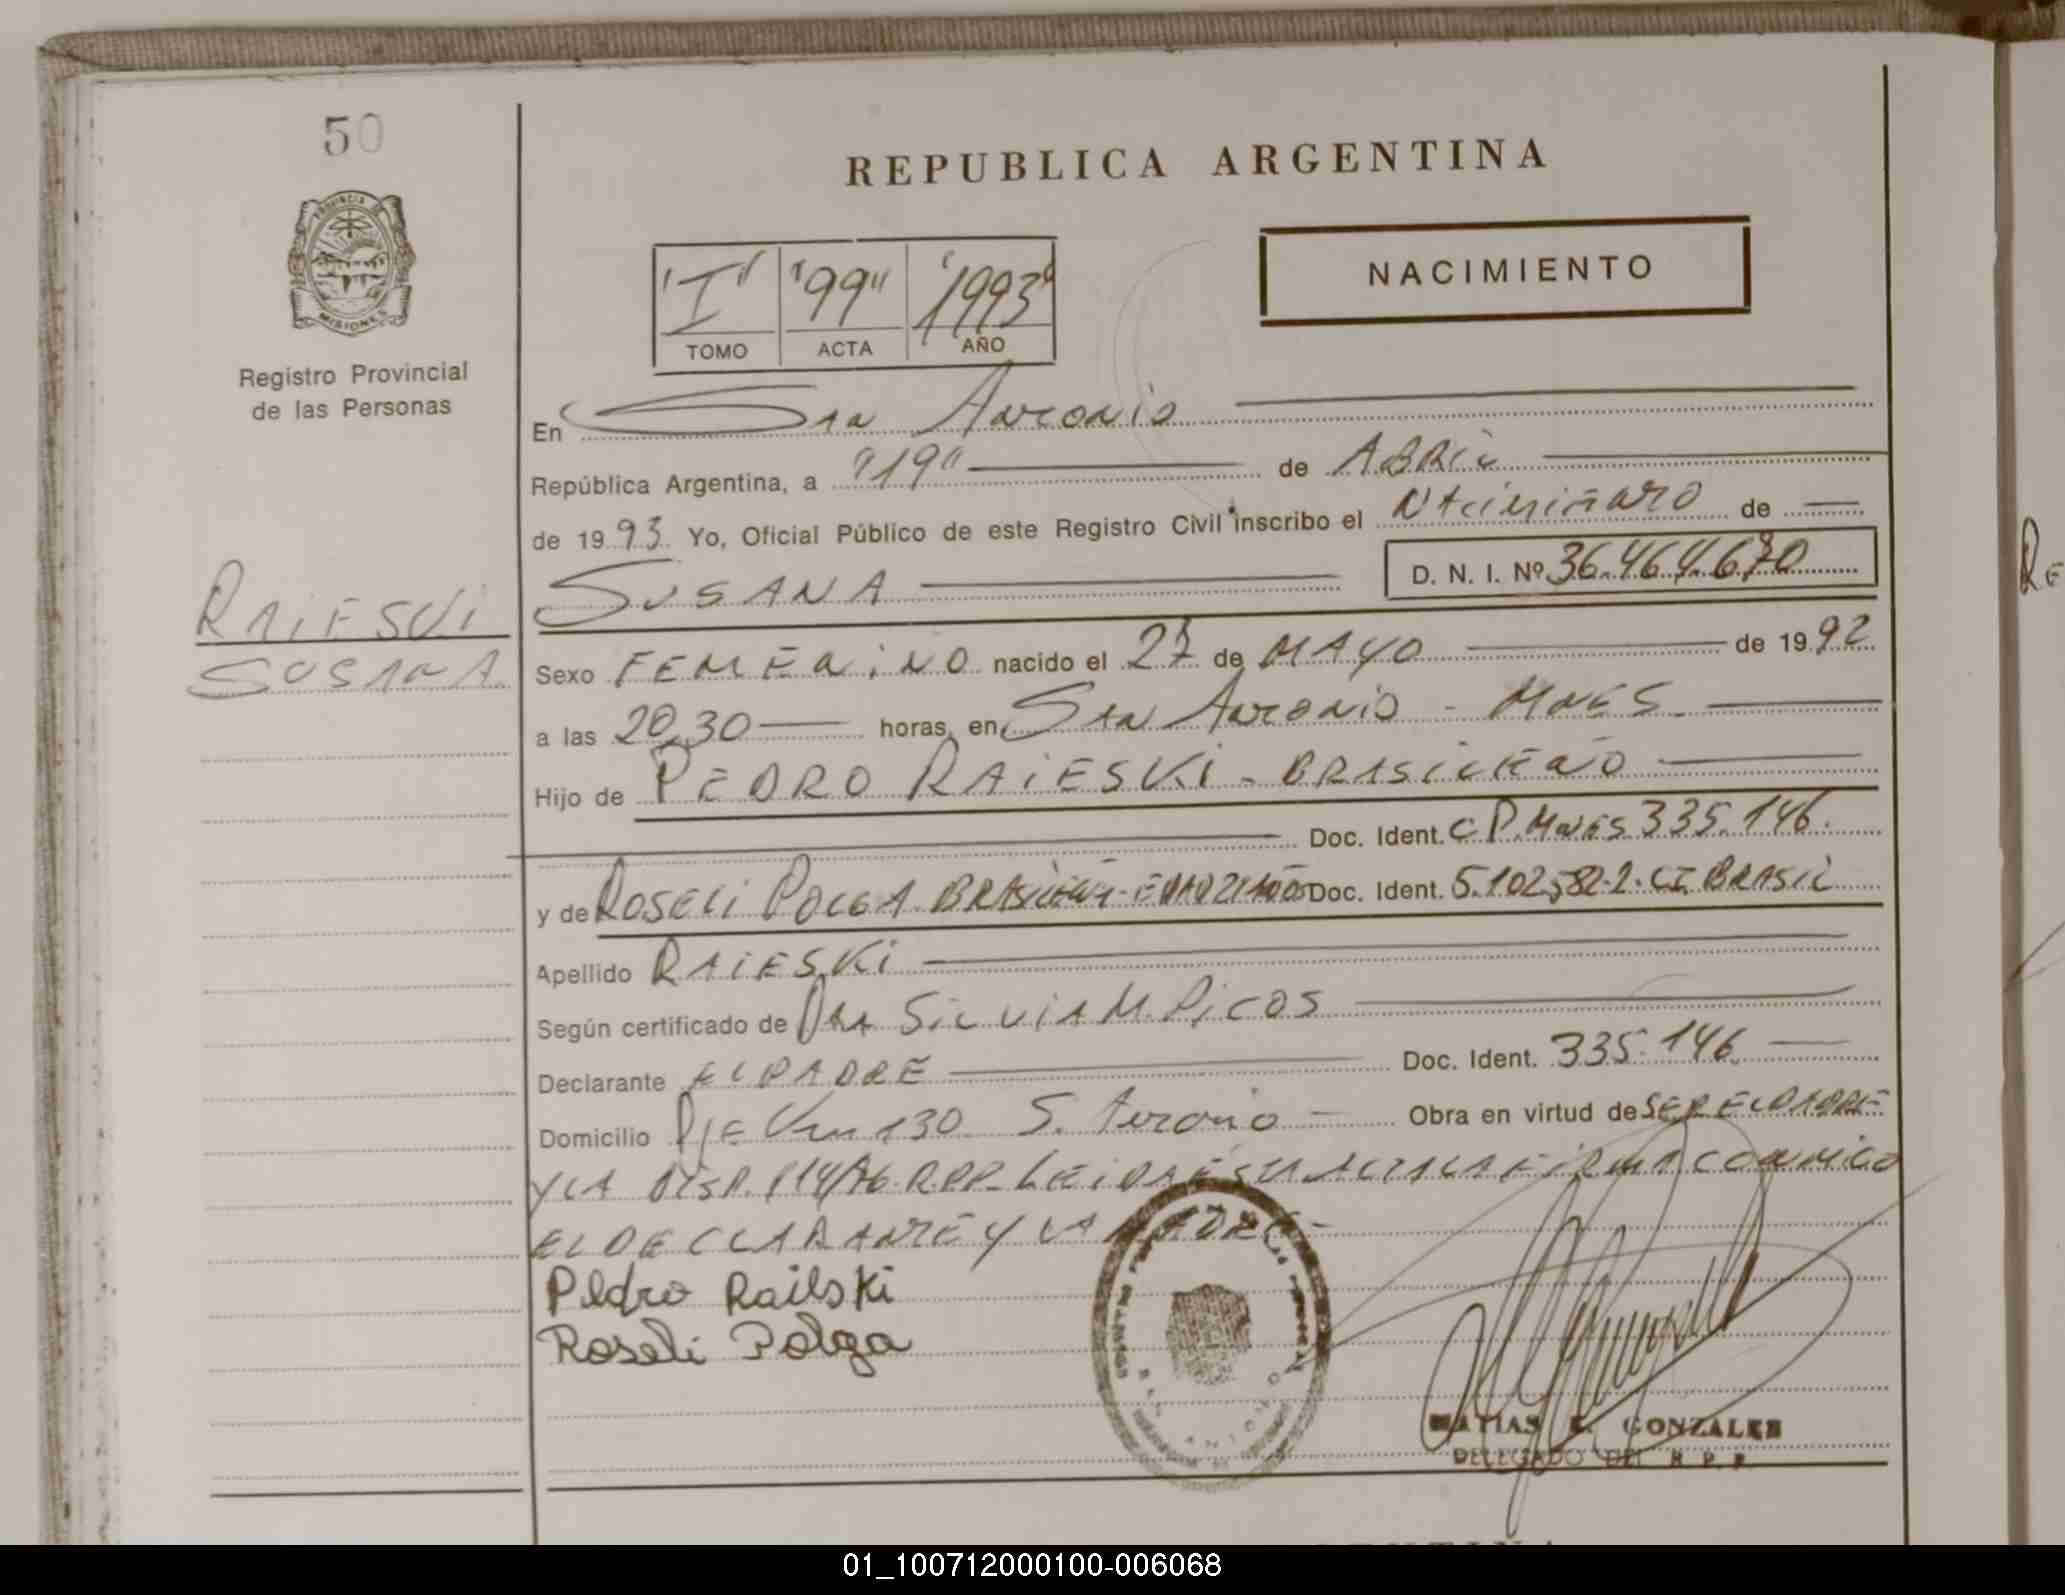 50
REPUBLICA ARGENTINA
NACIMIENTO
"I" "99" "1993"
TOMO ACTA AÑO
PROVINCIA DE
MISIONES
Registro Provincial
de las Personas
En San Antonio
República Argentina, a "19" de ABRIL
de 1993. Yo, Oficial Público de este Registro Civil inscribo el Nacimiento de
SUSANA D. N. I. Nº 36.464.670
RAIESKI
SUSANA
Sexo FEMENINO nacido el 27 de MAYO de 1992
a las 20,30 horas, en San Antonio - MNES
Hijo de PEDRO RAIESKI - BRASILEÑO
Doc. Ident. C.P. MNES 335.146.
y de ROSELI POLGA BRASILEÑA - Doc. Ident. 5.102.582-2. CI. BRASIL
Apellido RAIESKI
Según certificado de DRA SILVIA M. PICOS
Declarante EL PADRE Doc. Ident. 335.146
Domicilio Pje 130 S. Antonio Obra en virtud de SER EL PADRE
Y LA DISP. 114/76 R.P.P. LEIDA ESTA ACTA LA FIRMA CONMIGO
EL DECLARANTE Y LA MADRE
Pedro Raieski
Roseli Polga
MATIAS E. GONZALEZ
DELEGADO DEL R. P. P.
01_100712000100-006068